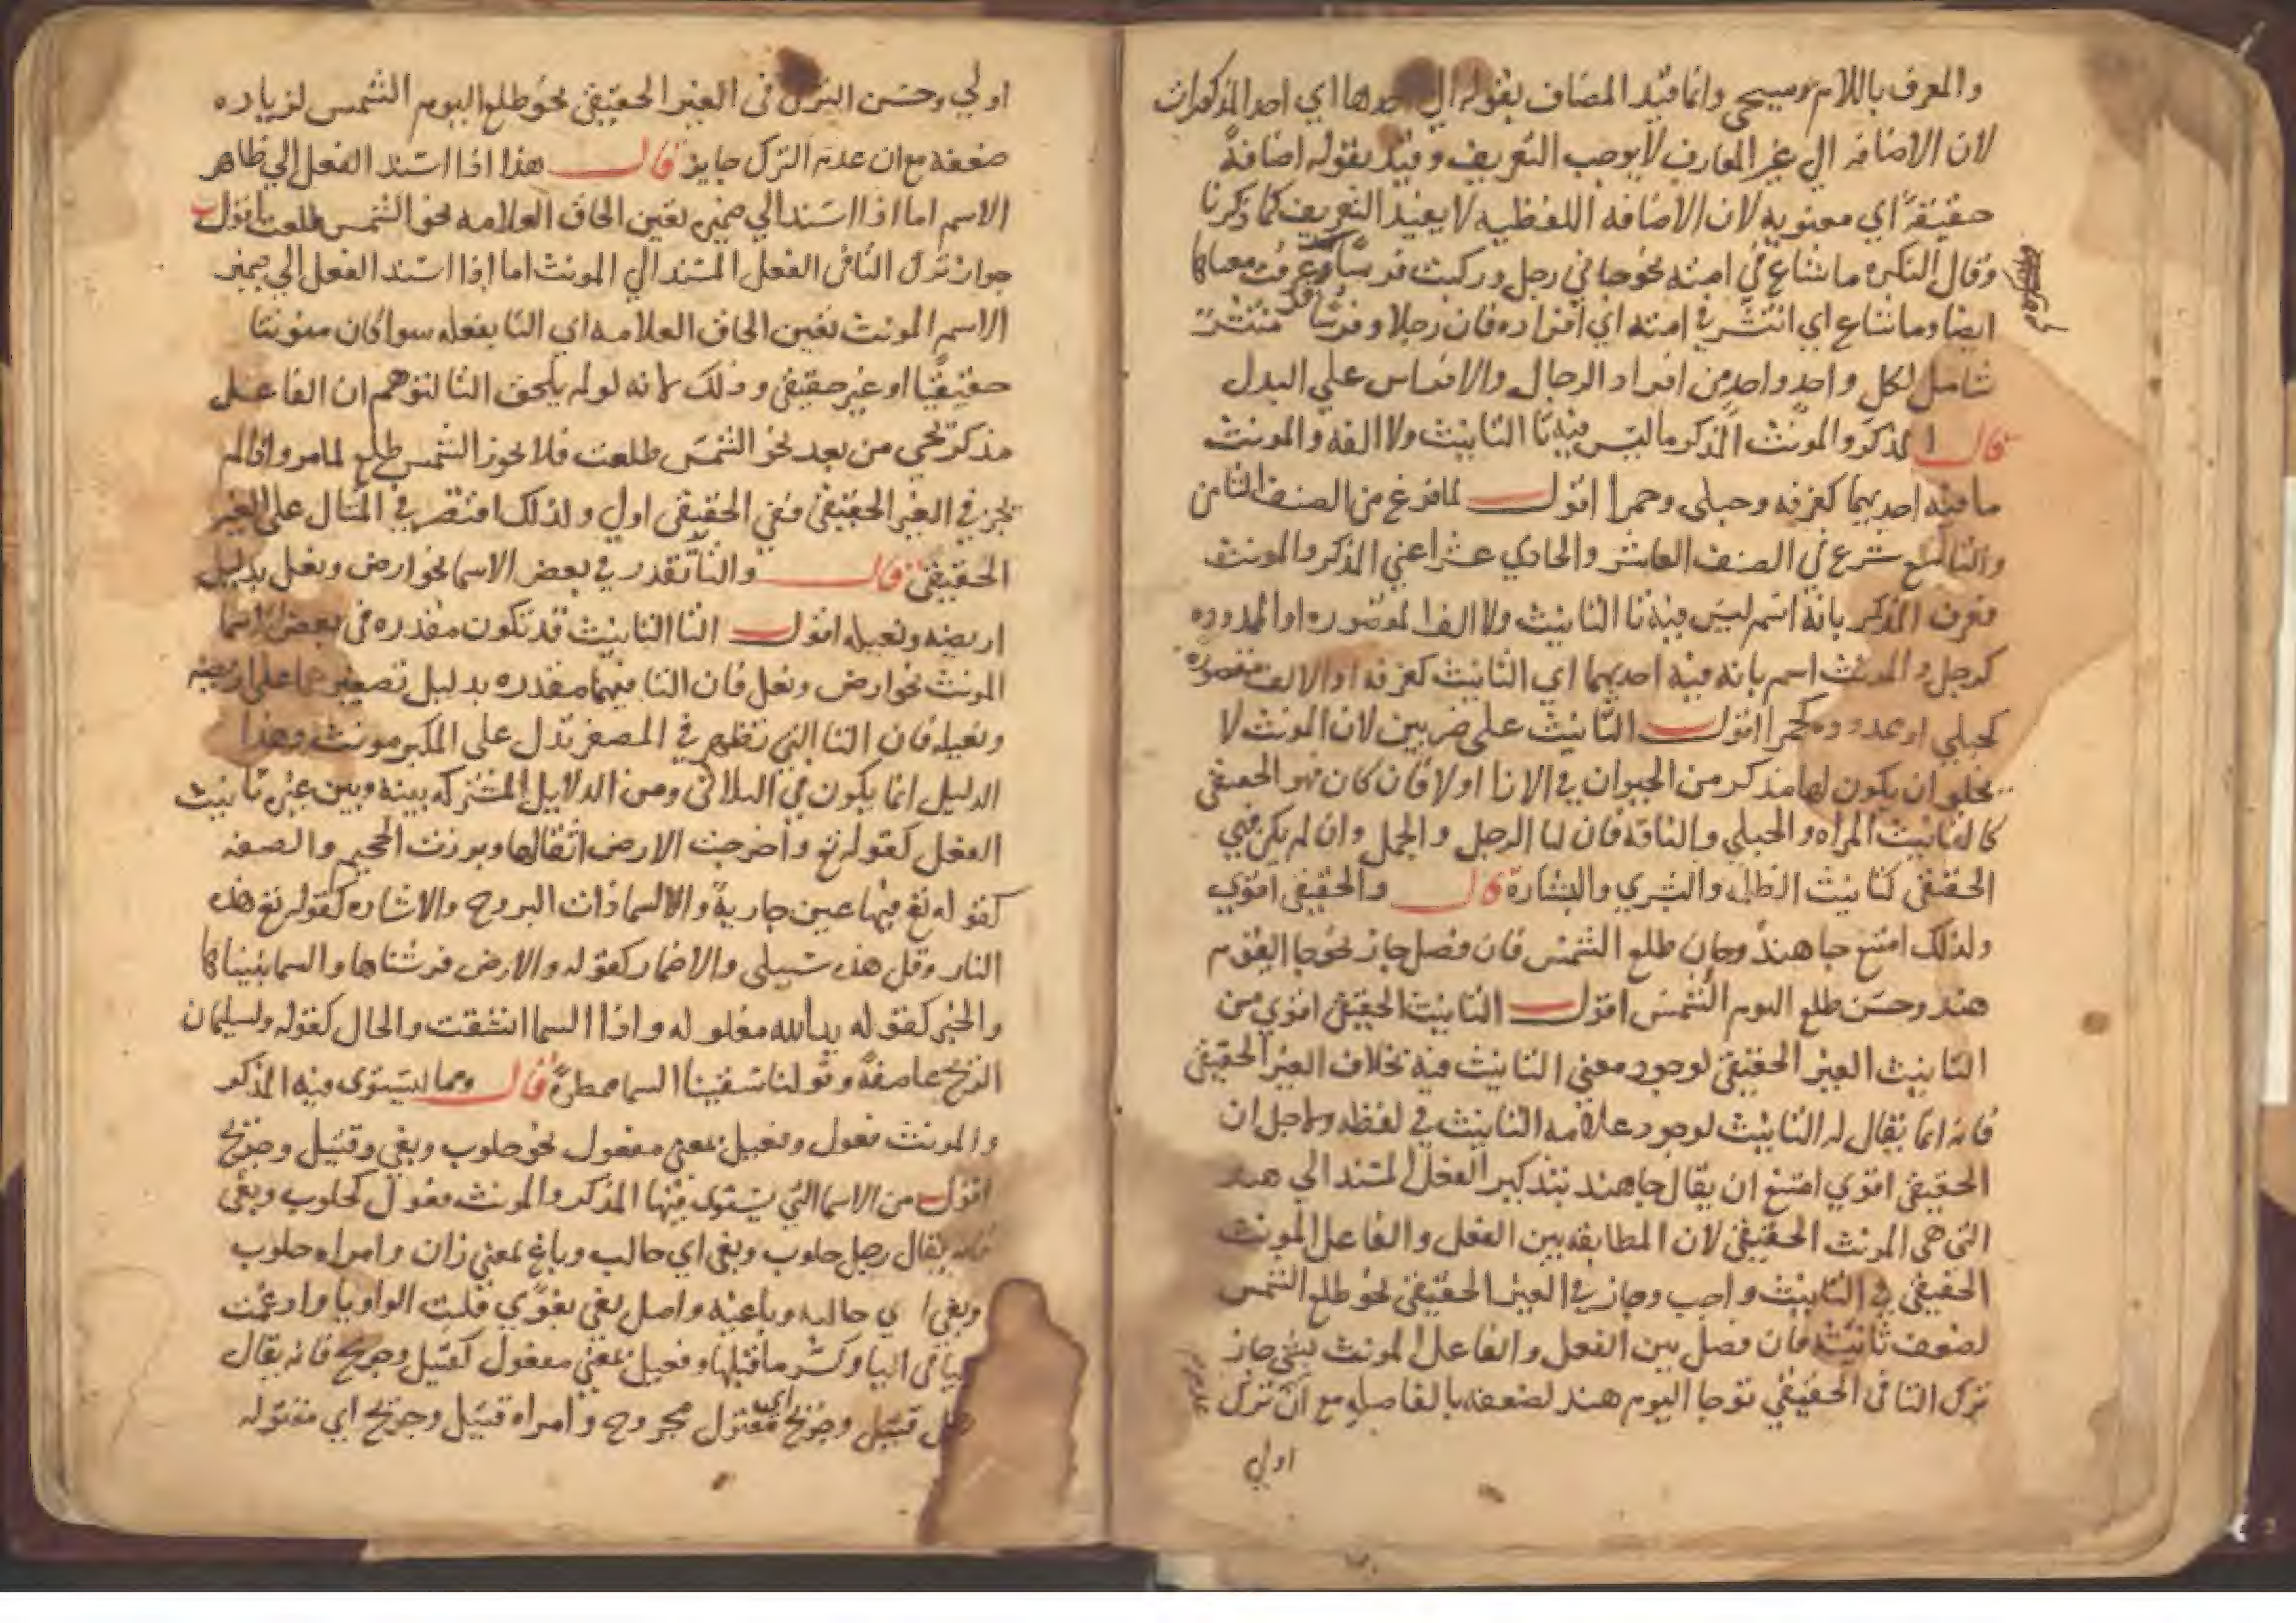 والمعرف باللام وسيجي وانما قيد المضاف بقوله الى احدها اي احد المذكورات
لان الاضافه الي غير المعارف لا يوجب التعريف وقيد بقوله اضافة
حقيقة اي معنويه لان الاضافه اللفظيه لا يفيد التعريف كما ذكرنا
وقال النكره ما شاع في امته نحو جاني رجل وركبت فرسا وعرفت معناها
ايضا وما شاع اي انتشر في امته اي افراده فان رجلا وفرسا منتشر
شامل لكل واحد واحد من افراد الرجال والافراس علي البدل
قال المذكر والمونث المذكر ما ليس فيه تا التانيث ولا الفه والمونث
ما فيه احديهما كغرفه وحبلى وحمرا اقول لما فرغ من الصنف الثامن
والتاسع شرع في الصنف العاشر والحادي عشر اعني المذكر والمونث
فعرف المذكر بانه اسم ليس فيه تا التانيث ولا الف المقصوره او الممدوده
كرجل والمونث اسم بانه فيه احديهما اي التانيث كغرفه او الالف مقصوره
كحبلي او ممدوده كحمرا اقول التانيث على ضربين لان المونث لا
يخلو ان يكون لها مذكر من الحيوان في الازا او لا فان كان فهو الحقيقي
كالتانيث المراه والحبلي والناقه فان لها الرجل والجمل وان لم يكن فهي
الحقيقي كتانيث الظلمه والبشري والبشارة قال والحقيقي اقوي
ولذلك امتنع جا هند وجان طلع الشمس فان فصل جاز نحو جا اليوم
هند وحسن طلع اليوم الشمس اقول التانيث الحقيقي اقوي من
التانيث الغير الحقيقي لوجود معني التانيث فيه بخلاف الغير الحقيقي
فانه انما يقال له التانيث لوجود علامه التانيث في لفظه ولاجل ان
الحقيقي اقوي امتنع ان يقال جا هند بتذكير الفعل المسند الي هند
التي هي المونث الحقيقي لان المطابقه بين الفعل والفاعل المونث
الحقيقي في التانيث واجب وجاز في الغير الحقيقي نحو طلع الشمس
لضعف تانيثه فان فصل بين الفعل والفاعل المونث بشي جاز
ترك التا في الحقيقي نحو جا اليوم هند لضعفه بالفاصله مع ان ترك
اولي
اولي وحسن الترك في الغير الحقيقي نحو طلع اليوم الشمس لزياده
ضعفه مع ان عدم الترك جايز قال هذا اذا اسند الفعل الي ظاهر
الاسم اما اذا اسند الي ضميره تعين الحاق العلامه نحو الشمس طلعت اقول
جواز ترك التا في الفعل المسند الي المونث اما اذا اسند الفعل الي ضمير
الاسم المونث تعين الحاق العلامه اي التا بفعله سوا كان مونثا
حقيقيا او غير حقيقي وذلك لانه لو لم يلحق التا لتوهم ان الفاعل
مذكر يجي من بعد نحو الشمس طلعت فلا يجوز الشمس طلع لما مر واذا لم
يجز في الغير الحقيقي ففي الحقيقي اولي ولذلك اقتصر في المثال على الغير
الحقيقي قال والتا تقدر في بعض الاسما نحو ارض ونعل بدليل
اريضه ونعيله اقول التا التانيث قد تكون مقدره في بعض اسما
المونث نحو ارض ونعل فان التا فيهما مقدره بدليل تصغيرهما على اريضه
ونعيله فان التا التي تظهر في المصغر تدل على المكبر مونث وهذا
الدليل انما يكون في الثلاثي ومن الدلايل المشتركه بينه وبين غيره تانيث
الفعل كقوله تع واخرجت الارض اثقالها وبرزت الجحيم والصفه
كقوله تع فيها عين جارية والسما ذات البروج والاشاره كقوله تع هذه
النار وقل هذه سبيلي والاضمار كقوله والارض فرشناها والسما بنيناها
والخبر كقوله يد الله مغلوله واذا السما انشقت والحال كقوله ولسليمان
الريح عاصفة وقولنا سقينا السما ممطرة قال ومما يستوى فيه المذكر
والمونث فعول وفعيل بمعني مفعول نحو حلوب وبغي وقتيل وجريح
اقول من الاسما التي يستوى فيها المذكر والمونث فعول كحلوب وبغي
فانه يقال رجل حلوب وبغي اي حالب وباغ بمعني زان وامراه حلوب
وبغي اي حالبه وباغيه واصل بغي بغوي قلبت الواو يا وادغمت
اليا في اليا وكسر ما قبلها وفعيل بمعني مفعول كقتيل وجريح فانه يقال
رجل قتيل وجريح اي مقتول مجروح وامراه قتيل وجريح اي مقتوله